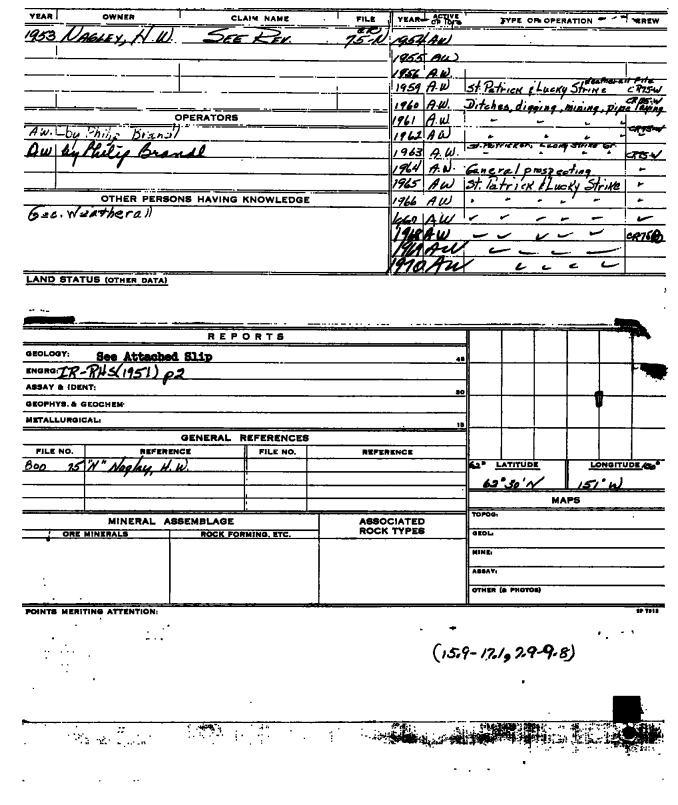 YEAR OWNER CLAIM NAME FILE YEAR ACTIVE TYPE OF OPERATION CREW
1953 NAGLEY, H.W. SEE REV. 75-N
1954 AW
1955 AW
1956 A.W.
1959 A.W St. Patrick & Lucky Strike CR75-W
1960 A.W. Ditches, digging, mining, pipe laying
1961 A.W. " " " "
1962 A.W " " " " CR75-W
1963 A.W. CR75-W
1964 A.W. General prospecting "
1965 AW St. Patrick & Lucky Strike "
1966 AW " " " " "
AW " " " " "
1968 AW " " " "
1969 AW " " " "
1970 AW " " " "
OPERATORS
A.W. by Philip Brandl
AW by Philip Brandl
OTHER PERSONS HAVING KNOWLEDGE
Geo. Weatherall
LAND STATUS (OTHER DATA)
REPORTS
GEOLOGY: See Attached Slip 45
ENGRG: IR-RHS (1951) p2
ASSAY & IDENT: 30
GEOPHYS. & GEOCHEM:
METALLURGICAL: 15
GENERAL REFERENCES
FILE NO. REFERENCE FILE NO. REFERENCE
800 75 "N" Nagley, H. W.
62° LATITUDE LONGITUDE
62°30'N 151°W
MAPS
TOPOG:
GEOL:
MINE:
ASSAY:
OTHER (& PHOTOS)
MINERAL ASSEMBLAGE ASSOCIATED ROCK TYPES
ORE MINERALS ROCK FORMING, ETC.
POINTS MERITING ATTENTION:
(15.9-17.1, 2.9-9.8)